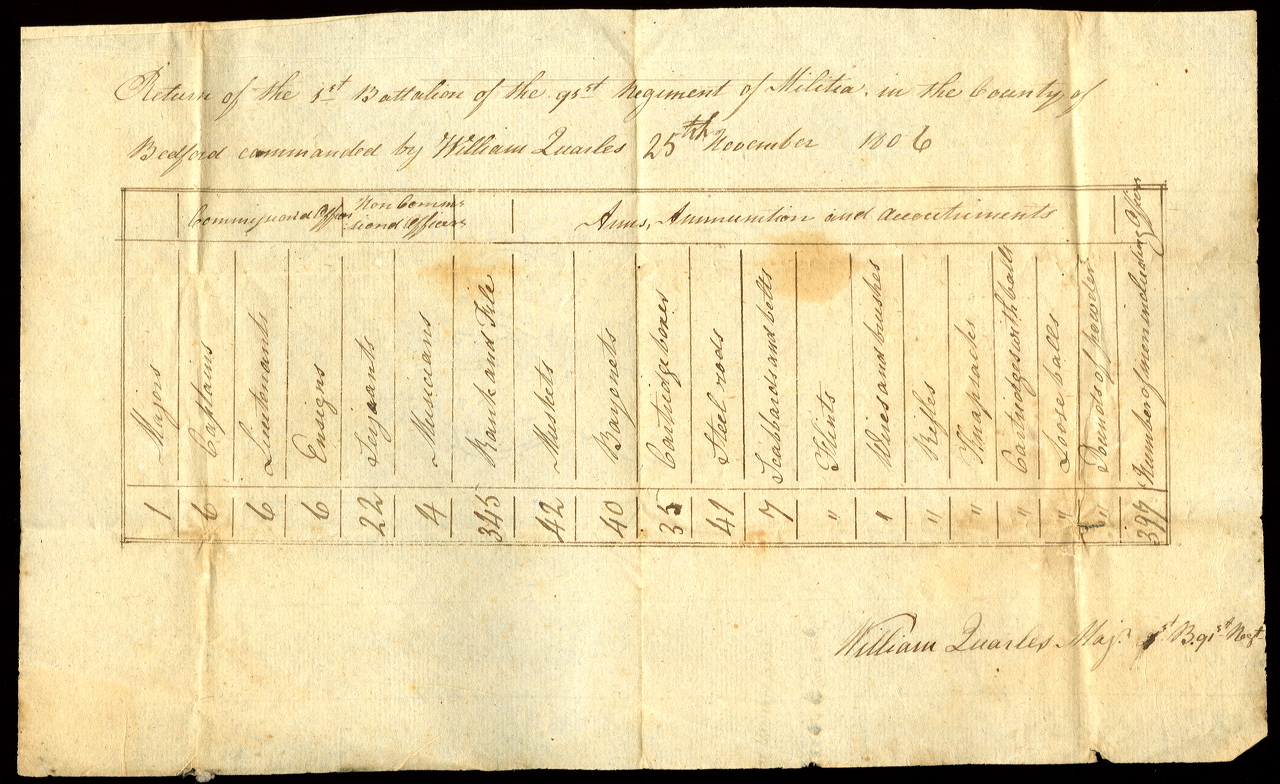 Return of the 1st Battalion of the 91st Regiment of Militia in the County of
Bedford commanded by William Quarles 25th November 1806
Commissioned Officers
Non Commis
sioned Officers
Arms, Ammunition and Accoutriments
Majors
Captains
Lieutenants
Ensigns
Serjeants
Musicians
Rank and File
Muskets
Bayonets
Cartridge boxes
Steel rods
Scabbards and belts
Flints
Wires and brushes
Rifles
Knapsacks
Cartridges with balls
Loose balls
Pounds of powder
Number of men including Officers
1
6
6
6
22
4
345
42
40
35
41
7
"
1
"
"
"
"
"
397
William Quarles Majr. 1st B. 91st Regt